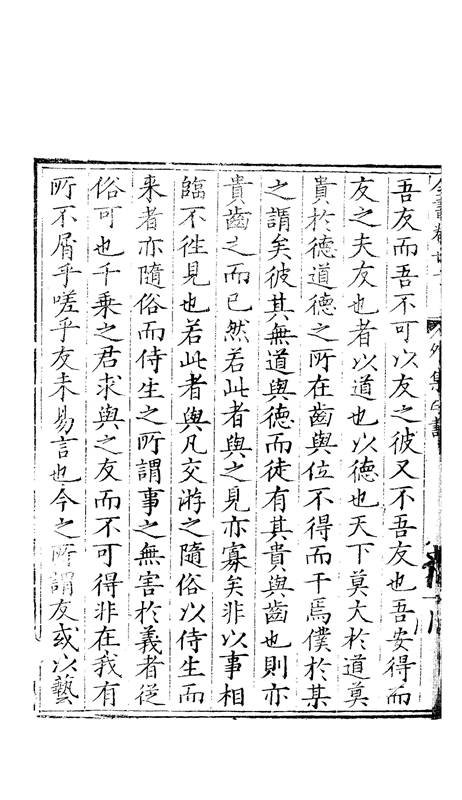 吾友而吾不可以友之彼又不吾友也吾安得而
友之夫友也者以道也以德也天下莫大於道莫
貴於德道德之所在齒與位不得而干焉僕於某
之謂矣彼其無道與德而徒有其貴與齒也則亦
貴齒之而已然若此者與之見亦寡矣非以事相
臨不徃見也若此者與凡交游之隨俗以侍生而
来者亦隨俗而侍生之所謂事之無害於義者從
俗可也千乗之君求與之友而不可得非在我有
所不屑乎嗟乎友未易言也今之所謂友或以藝